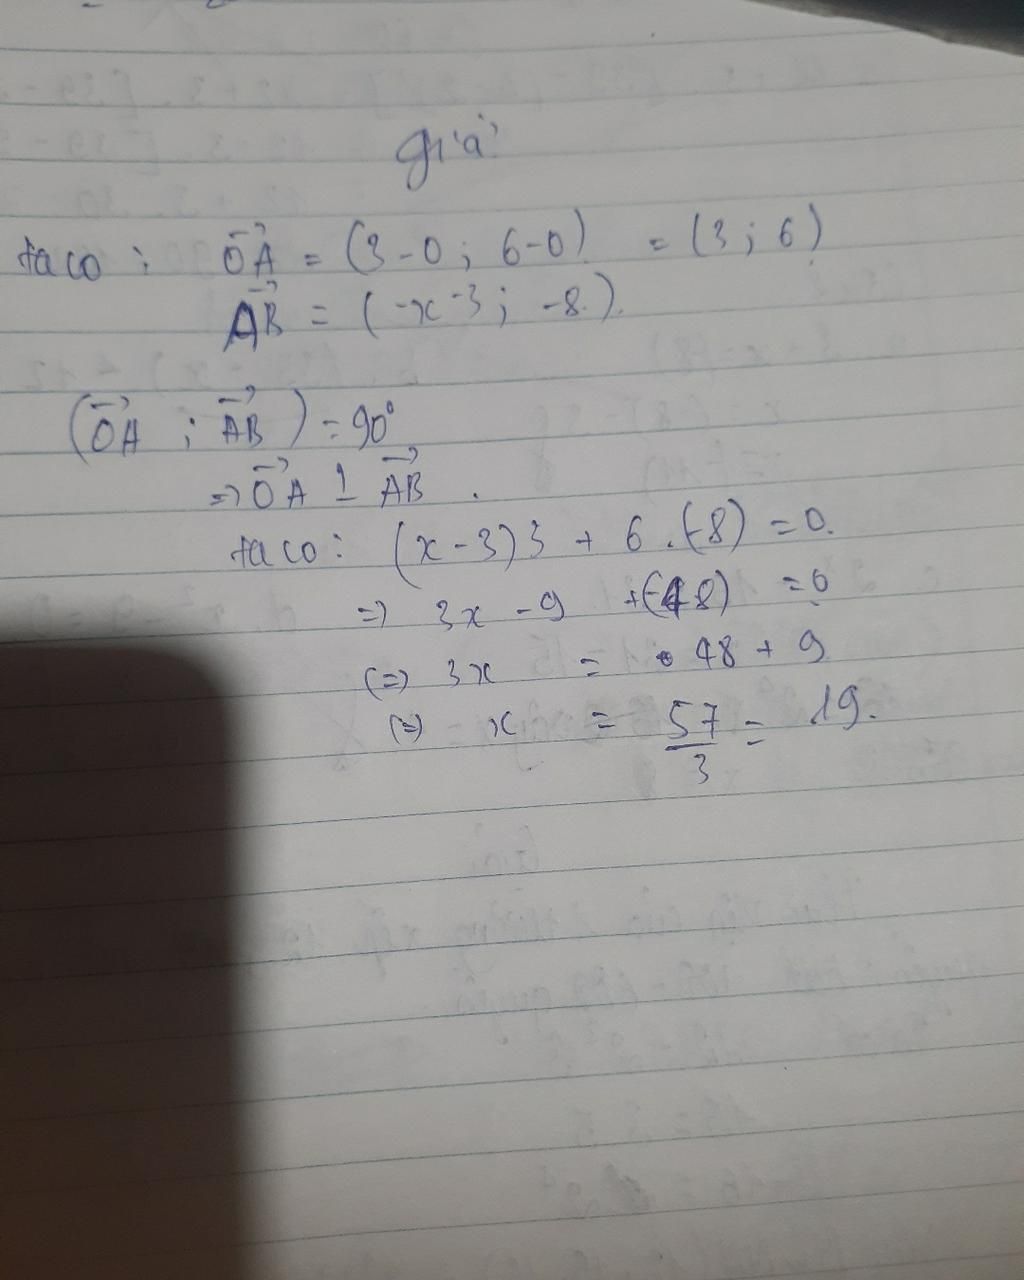 giải
ta có : OA = (3-0 ; 6-0) = (3 ; 6)
AB = (-x-3 ; -8).
(OA ; AB) = 90°
=> OA ⊥ AB .
ta có : (x-3)3 + 6.(-8) = 0.
=> 3x - 9 +(-48) = 0
(=) 3x = 48 + 9
(=) x = 57/3 = 19.